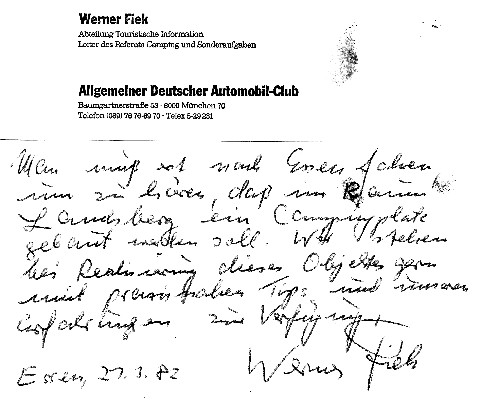 Werner Fiek
Abteilung Touristische Information
Leiter des Referats Camping und Sonderaufgaben
Allgemeiner Deutscher Automobil-Club
Baumgartnerstraße 53 - 8000 München 70
Telefon (089) 76 76-69 70 - Telex 5-29 231
Man muß erst nach Essen fahren
um zu hören, daß im Raum
Landsberg ein Campingplatz
gebaut werden soll. Wir stehen
bei Realisierung dieses Objektes gern
mit praxisnahen Tips und unseren
Erfahrungen zur Verfügung
Essen, 27.3.82 Werner Fiek